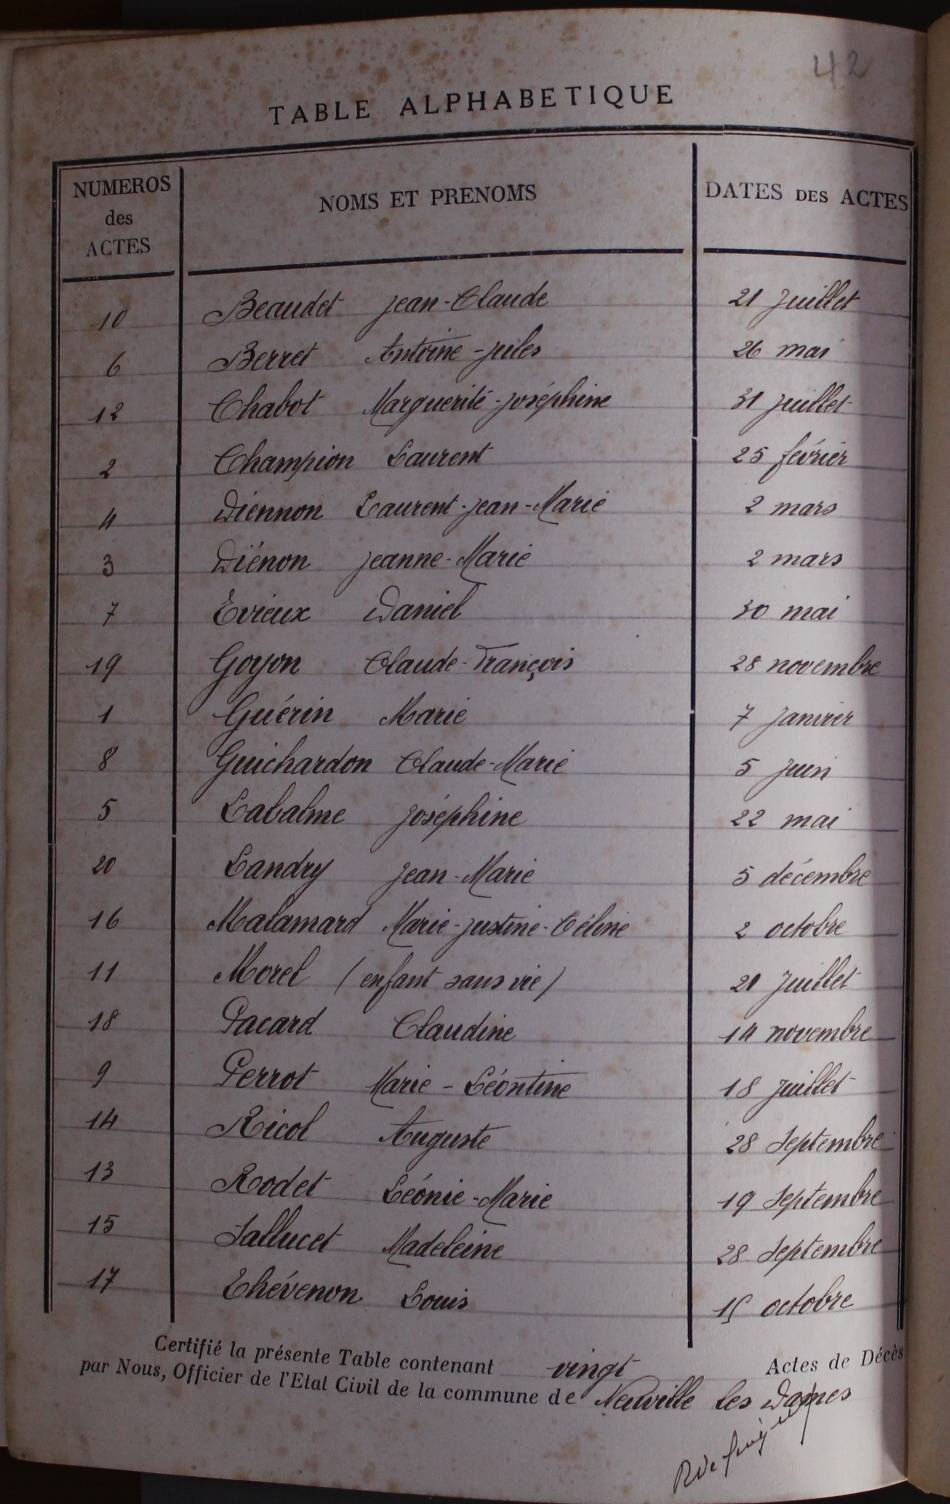 42
TABLE ALPHABETIQUE
NUMEROS des ACTES NOMS ET PRENOMS DATES DES ACTES
10 Beaudet Jean-Claude 21 juillet
6 Berret Antoine-Jules 26 mai
12 Chabot Marguerite-Joséphine 31 juillet
2 Champion Laurent 25 février
4 Diennon Laurent-Jean-Marie 2 mars
3 Diénon Jeanne-Marie 2 mars
7 Evieux Daniel 30 mai
19 Goyon Claude-François 28 novembre
1 Guérin Marie 7 janvier
8 Guichardon Claude-Marie 5 juin
5 Labalme Joséphine 22 mai
20 Landry Jean-Marie 5 décembre
16 Malamard Marie-Justine-Céline 2 octobre
11 Morel (enfant sans vie) 21 juillet
18 Pacard Claudine 14 novembre
9 Perrot Marie-Léontine 18 juillet
14 Ricol Auguste 28 Septembre
13 Rodet Léonie-Marie 19 Septembre
15 Sallucet Madeleine 28 Septembre
17 Thévenon Louis 15 octobre
Certifié la présente Table contenant vingt Actes de Décès
par Nous, Officier de l'Etat Civil de la commune de Neuville les Dames